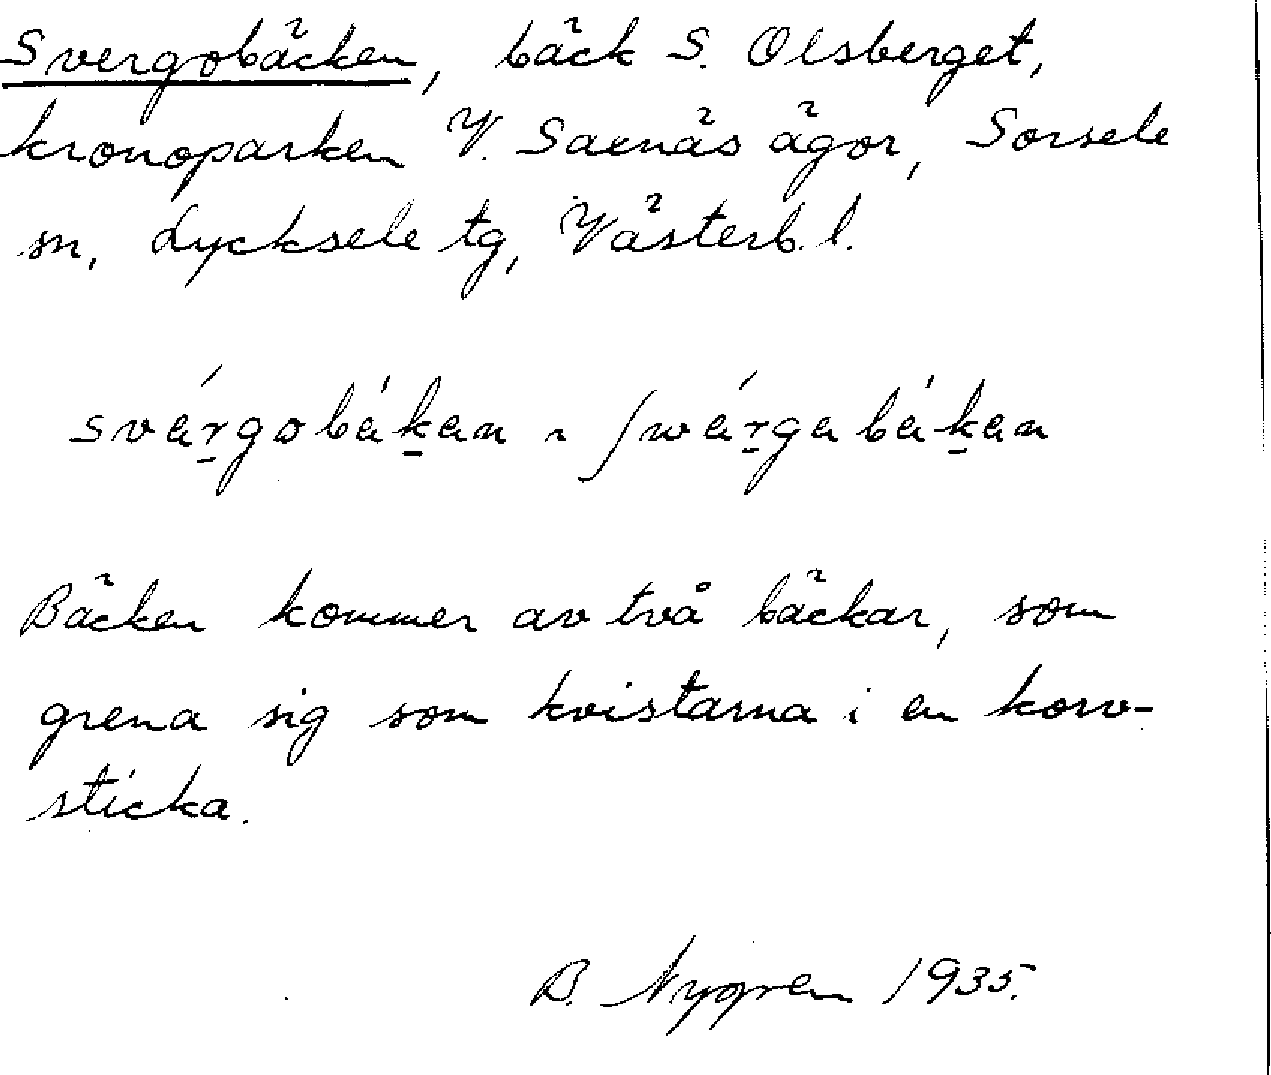 Svergobäcken, bäck S. Olsberget,
kronoparken V. Saxnäs ägor, Sorsele
sn, Lycksele tg, Västerb. l.
Bäcken kommer av två bäckar, som
grena sig som kvistarna i en korv-
sticka.
B. Nygren 1935.